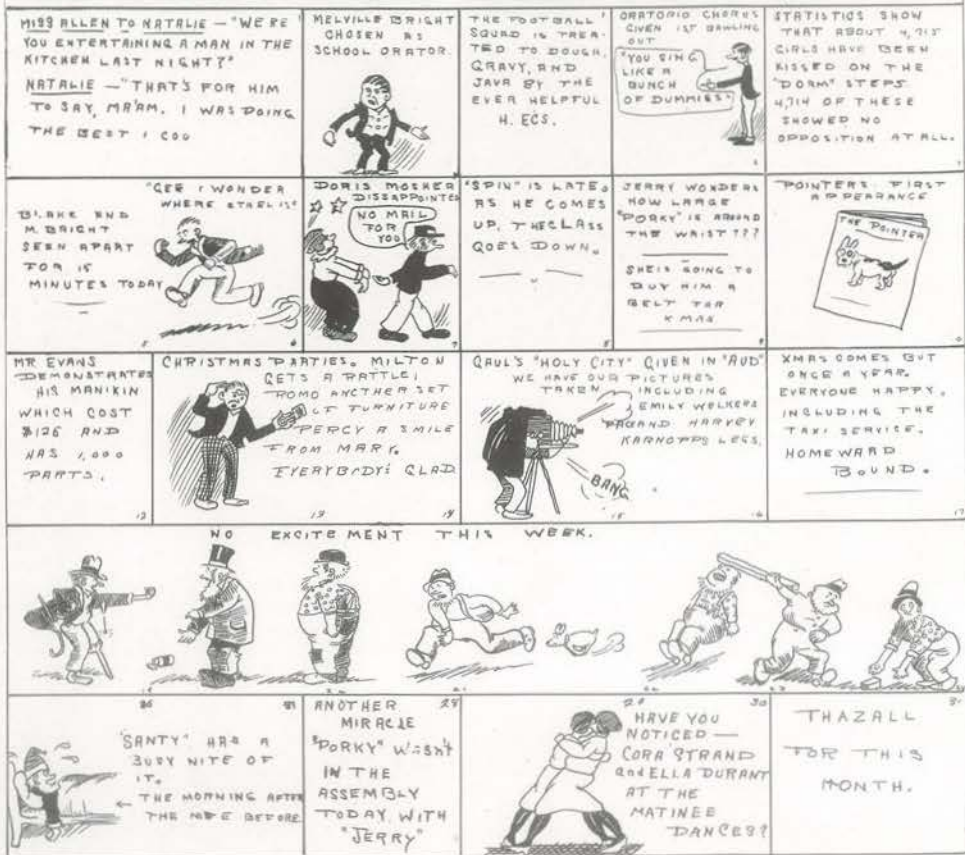 MISS ALLEN TO NATALIE — "WERE
YOU ENTERTAINING A MAN IN THE
KITCHEN LAST NIGHT?"
NATALIE — "THAT'S FOR HIM
TO SAY, MA'AM. I WAS DOING
THE BEST I COO
MELVILLE BRIGHT
CHOSEN AS
SCHOOL ORATOR.
THE FOOTBALL
SQUAD IS TREA-
TED TO DOUGH,
GRAVY, AND
JAVA BY THE
EVER HELPFUL
H. ECS.
ORATORIO CHORUS
GIVEN 1ST BAWLING
OUT
"YOU SING
LIKE A
BUNCH
OF DUMMIES"
STATISTICS SHOW
THAT ABOUT 4,715
GIRLS HAVE BEEN
KISSED ON THE
"DORM" STEPS
4,714 OF THESE
SHOWED NO
OPPOSITION AT ALL.
"GEE I WONDER
WHERE ETHEL IS"
BLAKE AND
M. BRIGHT
SEEN APART
FOR 15
MINUTES TODAY
5
6
DORIS MOSHER
DISSAPPOINTED
NO MAIL
FOR
YOU
7
"SPIN" IS LATE.
AS HE COMES
UP, THE CLASS
GOES DOWN.
8
JERRY WONDERS
HOW LARGE
"PORKY" IS AROUND
THE WAIST???
SHE IS GOING TO
BUY HIM A
BELT FOR
XMAS
9
POINTERS FIRST
APPEARANCE
THE POINTER
MR EVANS
DEMONSTRATES
HIS MANIKIN
WHICH COST
$126 AND
HAS 1,000
PARTS.
12
CHRISTMAS PARTIES. MILTON
GETS A RATTLE,
ROMO ANOTHER SET
OF FURNITURE
PERCY A SMILE
FROM MARY.
EVERYBODY'S GLAD
13
14
GAUL'S "HOLY CITY" GIVEN IN "AUD"
WE HAVE OUR PICTURES
TAKEN INCLUDING
EMILY WELKERS
AND HARVEY
KARNOPPS LEGS.
BANG
15
16
XMAS COMES BUT
ONCE A YEAR.
EVERYONE HAPPY,
INCLUDING THE
TAXI SERVICE.
HOMEWARD
BOUND.
17
NO EXCITEMENT THIS WEEK.
21
"SANTY" HAD A
BUSY NITE OF
IT.
← THE MORNING AFTER
THE NITE BEFORE
28
ANOTHER
MIRACLE
"PORKY" WASN'T
IN THE
ASSEMBLY
TODAY WITH
"JERRY"
29
30
HAVE YOU
NOTICED —
CORA STRAND
and ELLA DURANT
AT THE
MATINEE
DANCES?
31
THAZALL
FOR THIS
MONTH.